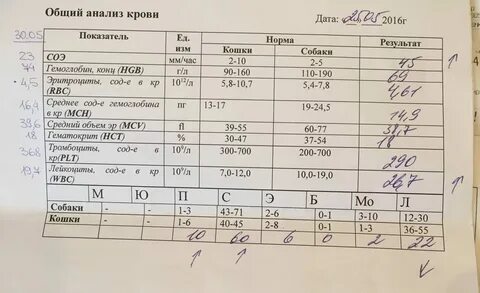 Общий анализ крови
Дата: 25.05 2016г
30.05
Показатель Ед. изм Норма Результат
Кошки Собаки
23 СОЭ мм/час 2-10 2-5 45 ↑
Гемоглобин, конц (HGB) г/л 90-160 110-190 69
4,5 Эритроциты, сод-е в кр (RBC) 10¹²/л 5,8-10,7 5,4-7,8 4,61
16,4 Среднее сод-е гемоглобина в кр (МСН) пг 13-17 19-24,5 14,9
39,6 Средний объем эр (MCV) fl 39-55 60-77 38,7
18 Гематокрит (НСТ) % 30-47 37-54 18
368 Тромбоциты, сод-е в кр(PLT) 10⁹/л 300-700 200-700 290
19,7 Лейкоциты, сод-е в кр (WBC) 10⁹/л 7,0-12,0 10,0-19,0 26,7 ↑
М Ю П С Э Б Мо Л
Собаки 1-3 43-71 2-6 0-1 3-10 12-30
Кошки 1-6 40-45 2-8 0-1 1-3 36-55
10 60 6 0 2 22
↑ ↑ ↓